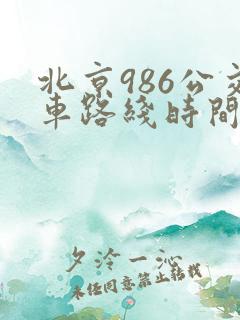 北京986公交
車路綫時間
夕泠一沁
未经同意禁止转载